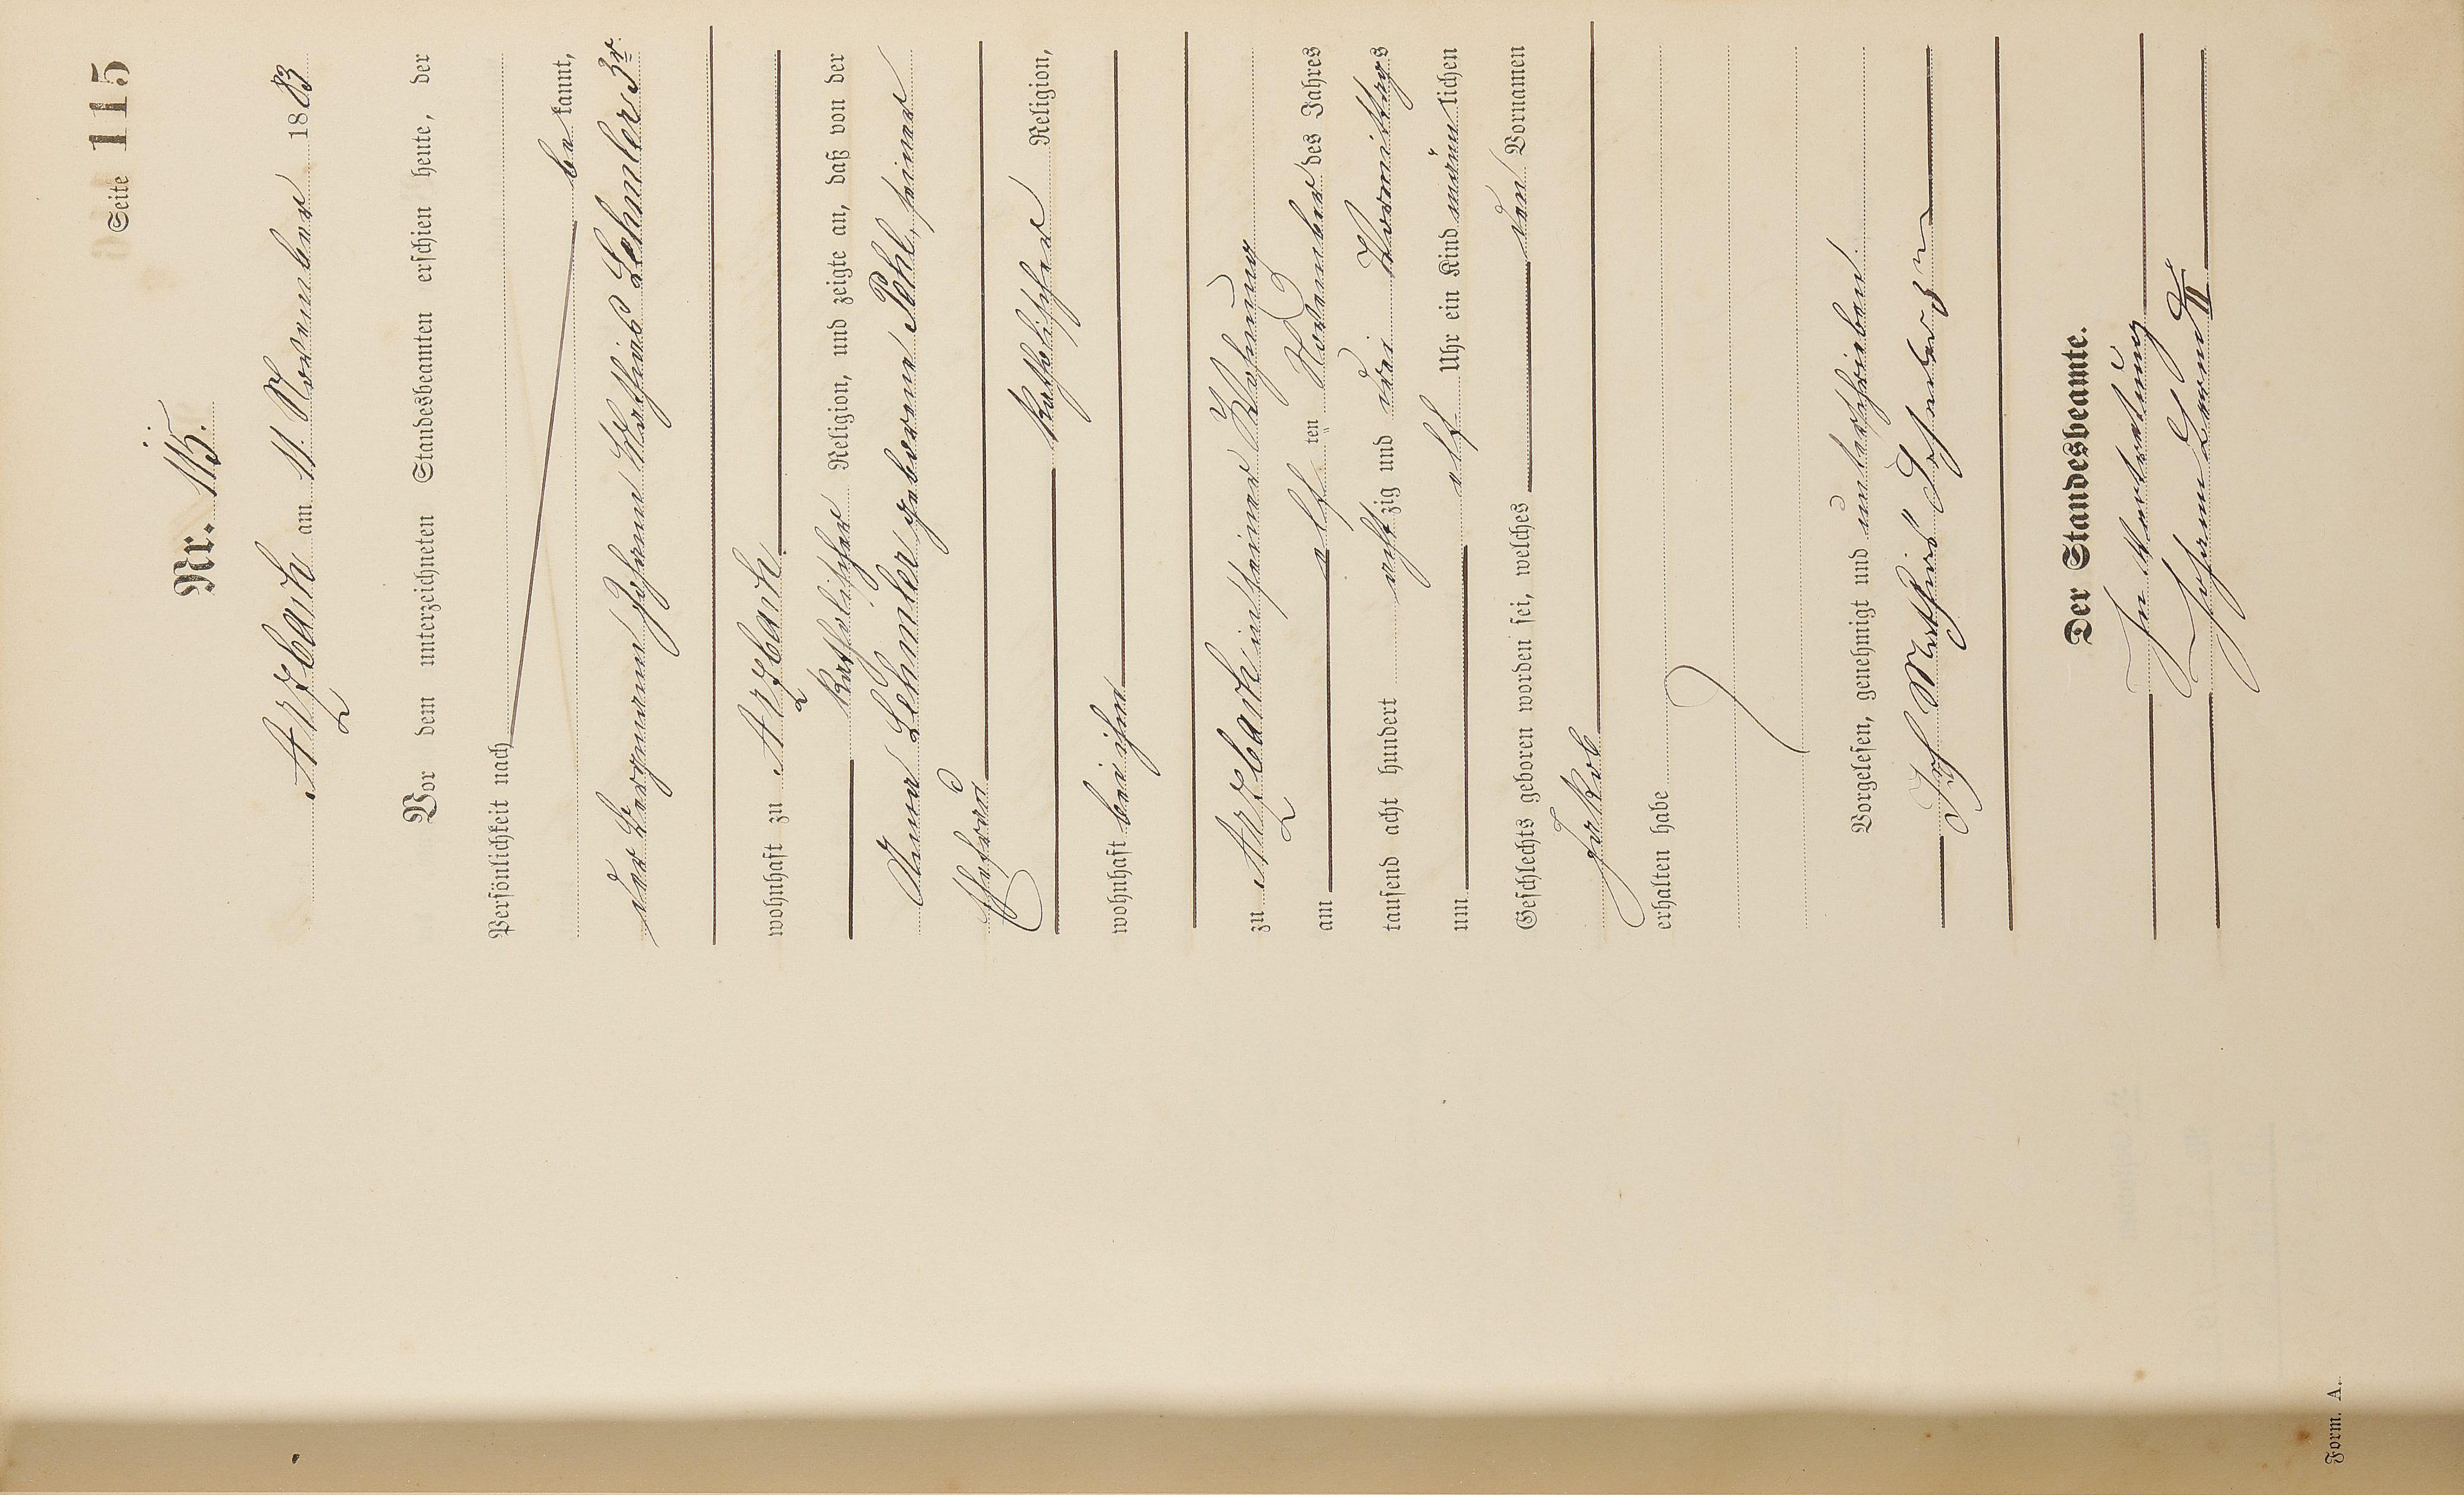 Seite 115
Nr. 115.
Arzbach am 11. November 1883
Vor dem unterzeichneten Standesbeamten erschien heute, der
Persönlichkeit nach
be kannt,
der Bergmann Johann Mathias Lehmler 3r
wohnhaft zu Arzbach
katholischer Religion, und zeigte an, daß von der
Anna Lehmler geborene Pehl, seiner
Ehefrau
katholischer Religion,
wohnhaft bei ihm
zu Arzbach in seiner Wohnung
am elf ten November des Jahres
tausend acht hundert acht zig und drei Vormittags
um elf Uhr ein Kind männ lichen
Geschlechts geboren worden sei, welches den Vornamen
Jakob
erhalten habe
Vorgelesen, genehmigt und unterschrieben
Joh Mathias
Der Standesbeamte.
In Vertretung
Johann II
Form. A.